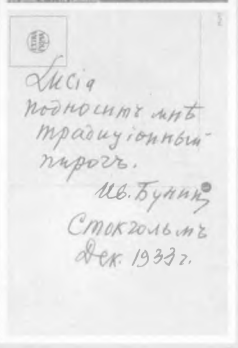 Lucia
подноситъ мнѣ
традиціонный
пирогъ.
Ив. Бунинъ
Стокгольмъ
Дек. 1933 г.